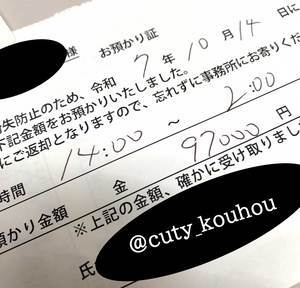 様 お預かり証
失防止のため、令和 7 年 10 月 14 日に
下記金額をお預かりいたしました。
にご返却となりますので、忘れずに事務所にお寄りくだ
時間 14:00 ~ 2:00
預かり金額 金 97000 円
※上記の金額、確かに受け取りました
氏
@cuty_kouhou